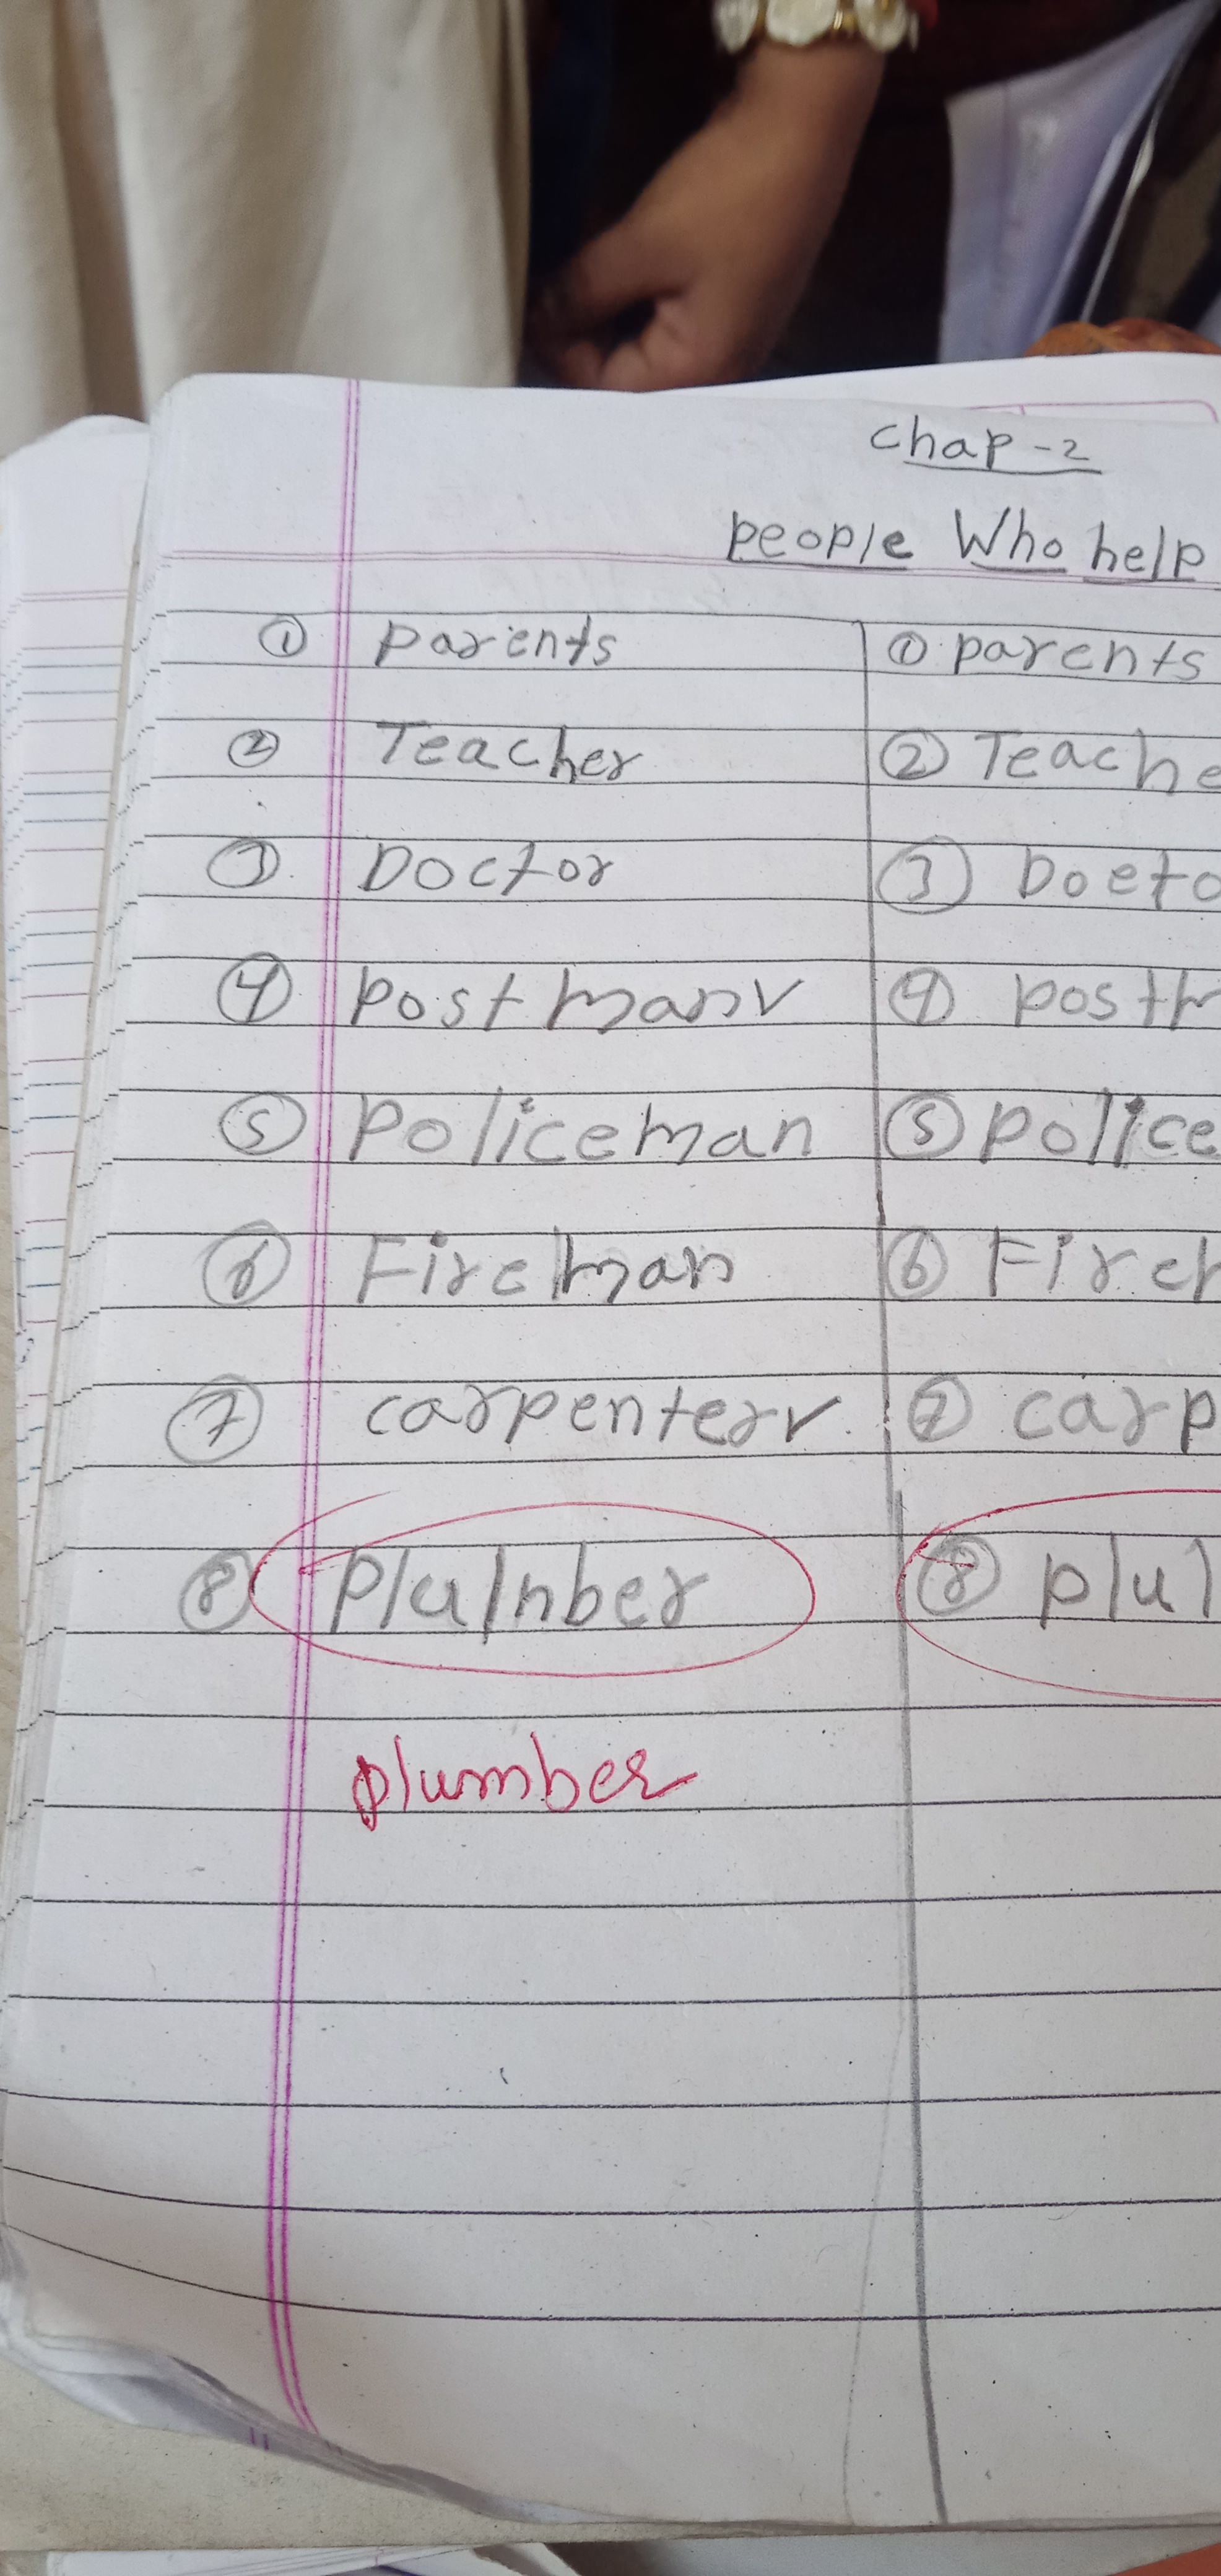 Chap-2
People Who help
① Parents ① parents
② Teacher ② Teache
③ Doctor ③ Docto
④ Postman ④ postm
⑤ Policeman ⑤ police
⑥ Fireman ⑥ Firem
⑦ carpenter ⑦ carp
⑧ Plulnber ⑧ plul
plumber